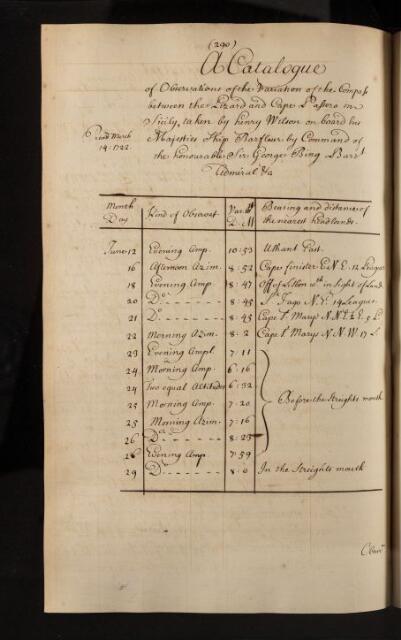 (290)
A Catalogue
of Observations of the Variation of the Compass
between the Lizard and Cape Passero in
Sicily, taken by henry Wilson on board his
Majesties Ship Barfleur by Command of
the honourable Sir George Bing Bart
Admiral &c
Read March
14. 1722.
Month Day Kind of Observat Var. Wt D. M Bearing and distance of the nearest headlands
June 12 Evening Amp. 10:53 Ushant East.
16 Afternoon Azim. 8:52 Cape finister E N E. 12 Leagues
18 Evening Amp 8:47 Off of Lisbon in sight of Land
20 Do 8:45 St Jago N. E. 14 Leagues
21 Do 8:45 Cape St Marys N. N. E. L.
22 Morning Azim. 8:2 Cape St Marys N N W. 17 L
23 Evening Ampl. 7:11
24 Morning Amp 6:16
24 two equal Altitudes 6:32
25 Morning Amp. 7:20 Before the Streights mouth
25 Morning Azim. 7:16
26 Do 8:23
26 Evening Amp 7:59
29 Do 8:0 In the Streights mouth